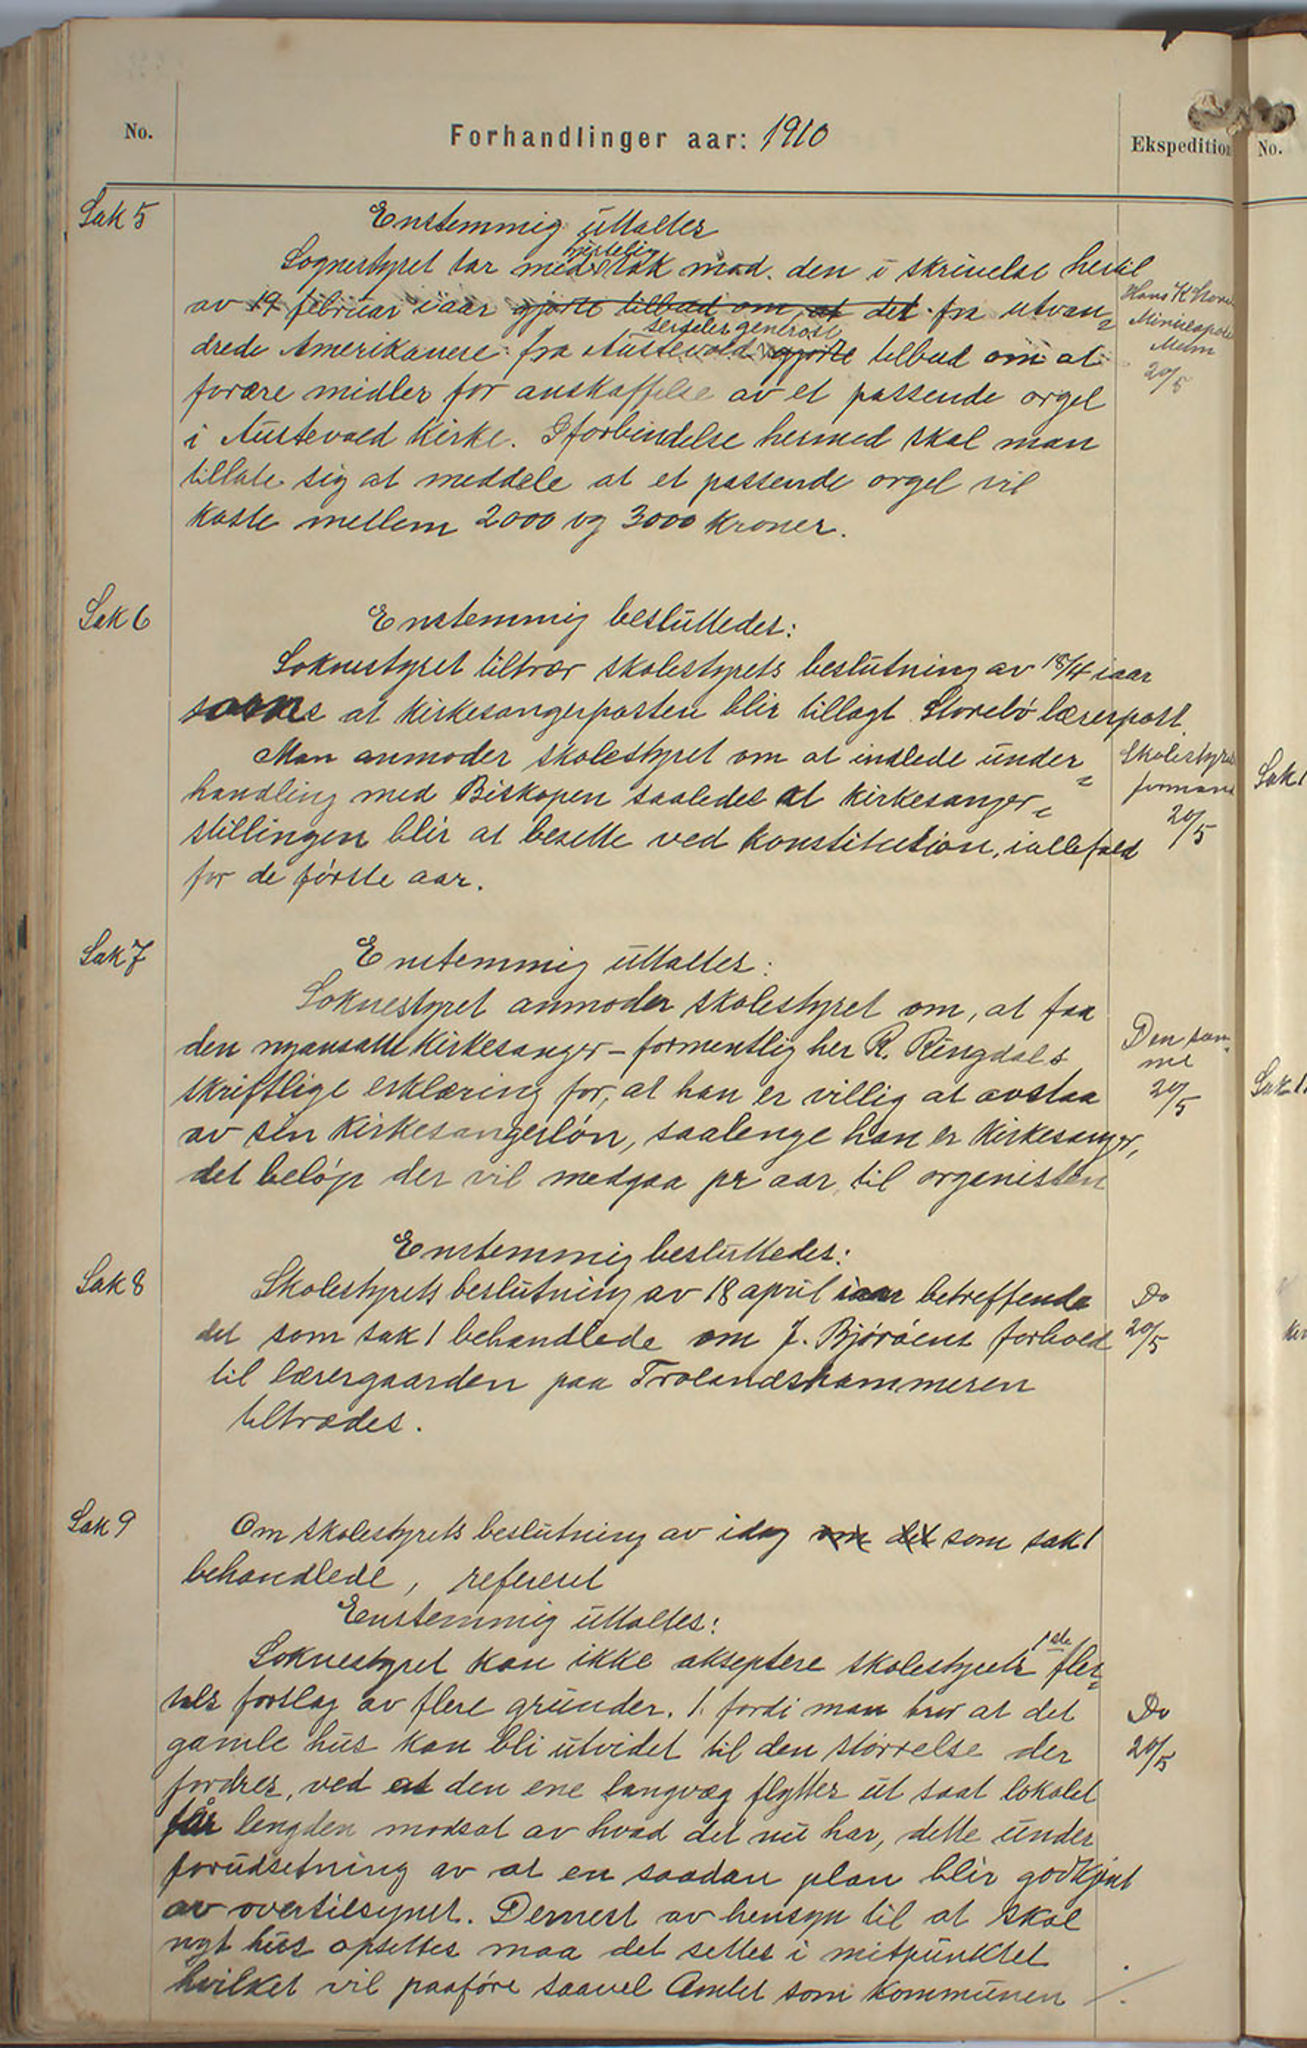 No.
Forhandlinger aar: 1910
Ekspedition
No.
Sak 5
Enstemmig uttaltes
Sognestyret tar med hjertelig tak mod den i skrivelse hertil
av 19 februar iaar gjorte tilbud om, at det fra utvan=
drede Amerikanere fra Austevold særdeles generøse gjorte tilbud om at
forære midler for anskaffelse av et passende orgel
i Austevold kirke. I forbindelse hermed skal man
tillate sig at meddele at et passende orgel vil
koste mellem 2000 og 3000 kroner.
Hans K
Minneapolis
20/5
Sak 6
Enstemmig besluttedes:
Soknestyret tiltrær skolestyrets beslutning av 18/4 iaar
at kirkesangerposten blir tillagt Storebö lærerpost.
Man anmoder skolestyret om at indlede under=
handling med Biskopen saaledes at kirkesanger=
stillingen blir at besette ved konstitution, iallefald
for de förste aar.
Skolestyrets
formand
20/5
Sak 1
Sak 7
Enstemmig uttaltes:
Soknestyret anmoder skolestyret om, at faa
den nyansatte kirkesanger – formentlig her R. Ringdals
skriftlige erklæring for, at han er villig at avstaa
av sin kirkesangerlön, saalenge han er kirkesanger,
det belöp der vil medgaa pr aar til organisten
Den sam-
me
20/5
Sak 1
Enstemmig besluttedes:
Sak 8
Skolestyrets beslutning av 18 april iaar betreffende
det som sak 1 behandlede om J. Björöens forhold
til lærergaarden paa Trolandshammeren
tiltrædes.
Do
20/5
Sak 9
Om skolestyrets beslutning av idag om det som sak 1
behandlede, refereret
Enstemmig uttaltes:
Soknestyret kan ikke akseptere skolestyrets 1ste fler=
tals forslag av flere grunder. 1. fordi man tror at det
gamle hus kan bli utvidet til den störrelse der
fordres, ved at den ene langvæg flyttes ut saat lokalet
får lengden modsat av hvad det nu har, dette under
forudsetning av at en saadan plan blir godkjent
av overtilsynet. Dernest av hensyn til at skal
nyt hus opsettes maa det settes i mitpunktet
hvilket vil paaföre saavel Amtet som kommunen ./.
Do
20/5